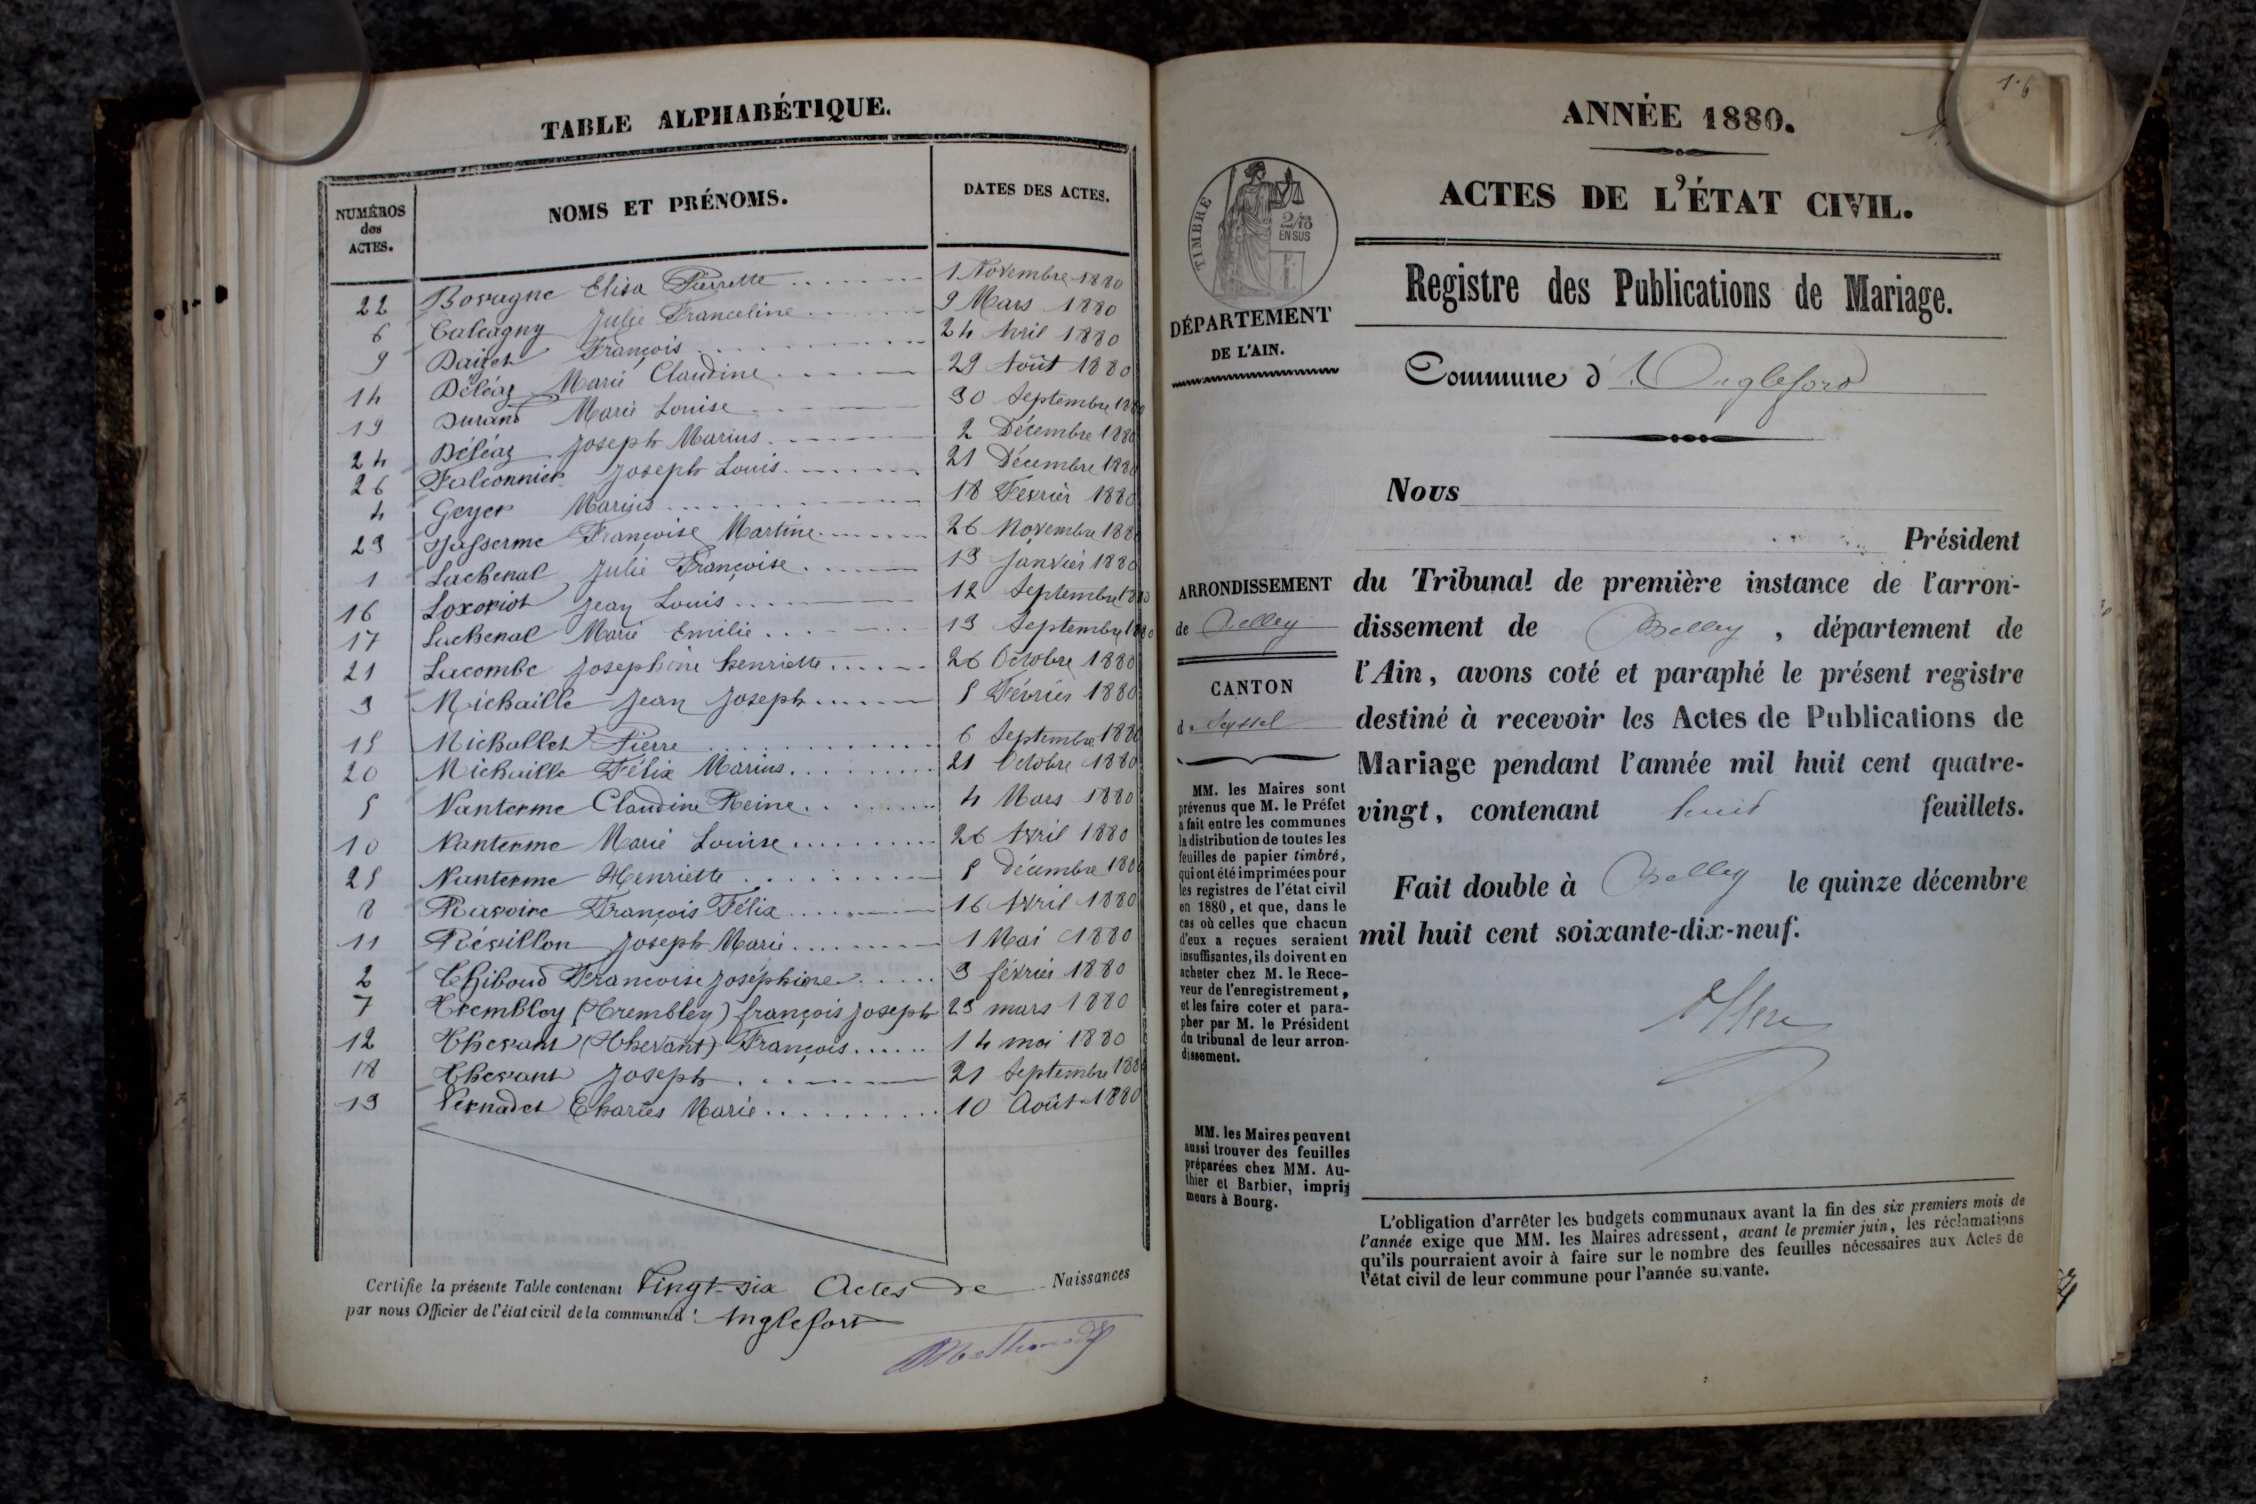 TABLE ALPHABÉTIQUE.
NUMÉROS des ACTES. NOMS ET PRÉNOMS. DATES DES ACTES.
22 Bovagne Elisa Pierrette 1 Novembre 1880
6 Calcagny Julie Franceline 9 Mars 1880
9 François 24 Avril 1880
14 Déléaz Marie Claudine 29 Août 1880
19 Durand Marie Louise 30 Septembre 1880
24 Déléaz Joseph Marius 2 Décembre 1880
26 Falconnier Joseph Louis 21 Décembre 1880
4 Geyer Marius 18 Février 1880
23 Françoise Martine 26 Novembre 1880
1 Lachenal Julie Françoise 13 Janvier 1880
16 Jean Louis 12 Septembre 1880
17 Lachenal Marie Emilie 13 Septembre 1880
21 Lacombe Josephine henriette 26 Octobre 1880
3 Michaille Jean Joseph 5 Février 1880
15 Michallet Pierre 6 Septembre 1880
20 Michaille Félix Marius 21 Octobre 1880
5 Nanterme Claudine Reine 4 Mars 1880
10 Nanterme Marie Louise 26 Avril 1880
25 Nanterme Henriette 5 décembre 1880
8 Ravoire François Félix 16 Avril 1880
11 Révillon Joseph Marie 1 Mai 1880
2 Thiboud Francoise Joséphine 3 février 1880
7 Trembley (Trembley) françois Joseph 23 mars 1880
12 Thevant (Thevant) François 14 mai 1880
18 Thevant Joseph 21 Septembre 1880
13 Vernadet Charles Marie 10 Août 1880
Certifie la présente Table contenant Vingt-six Actes de Naissances
par nous Officier de l'état civil de la commune d' Anglefort
1.6
ANNÉE 1880.
ACTES DE L'ÉTAT CIVIL.
Registre des Publications de Mariage.
TIMBRE
2/10 EN SUS
DÉPARTEMENT
DE L'AIN.
Commune d' Anglefort
Nous
Président
du Tribunal de première instance de l'arron-
dissement de Belley, département de
l'Ain, avons coté et paraphé le présent registre
destiné à recevoir les Actes de Publications de
Mariage pendant l'année mil huit cent quatre-
vingt, contenant huit feuillets.
Fait double à Belley le quinze décembre
mil huit cent soixante-dix-neuf.
ARRONDISSEMENT
de Belley
CANTON
d Seyssel
MM. les Maires sont
prévenus que M. le Préfet
a fait entre les communes
la distribution de toutes les
feuilles de papier timbré,
qui ont été imprimées pour
les registres de l'état civil
en 1880, et que, dans le
cas où celles que chacun
d'eux a reçues seraient
insuffisantes, ils doivent en
acheter chez M. le Rece-
veur de l'enregistrement,
et les faire coter et para-
pher par M. le Président
du tribunal de leur arron-
dissement.
MM. les Maires peuvent
aussi trouver des feuilles
préparées chez MM. Au-
thier et Barbier, impri-
meurs à Bourg.
L'obligation d'arrêter les budgets communaux avant la fin des six premiers mois de
l'année exige que MM. les Maires adressent, avant le premier juin, les réclamations
qu'ils pourraient avoir à faire sur le nombre des feuilles nécessaires aux Actes de
l'état civil de leur commune pour l'année suivante.